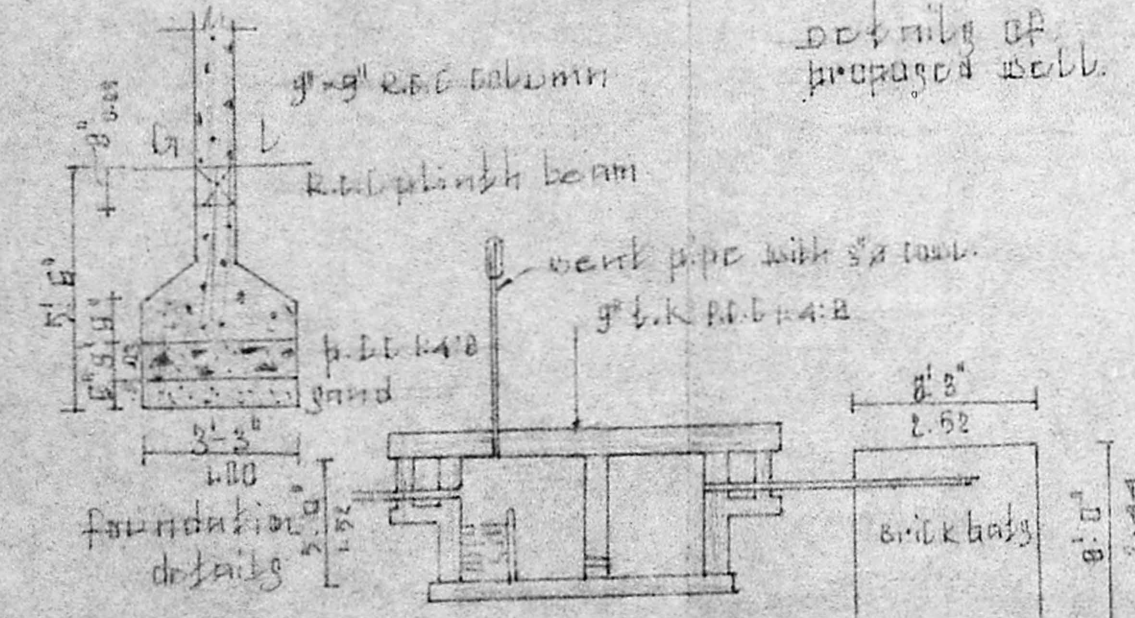 details of
proposed well.
9"x9" R.C.C column
9"
G L
R.C.C plinth beam
5' 6"
vent pipe with 3"ø cowl.
9" t.k P.C.C 1:4:8
9" 9" 6"
p.c.c 1:4:8
sand
3'-3"
1.00
foundation
details
5'-0"
1.52
8' 3"
2.52
Brick bats
8'-0"